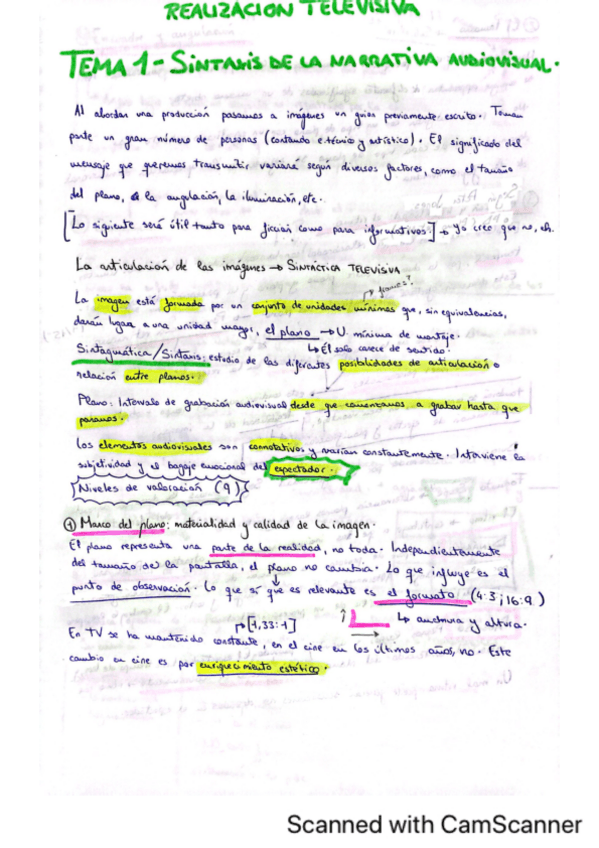 REALIZACION TELEVISIVA
TEMA 1 - SINTAXIS DE LA NARRATIVA AUDIOVISUAL.
Al abordar una producción pasamos a imágenes un guion previamente escrito. Toman
parte un gran número de personas (contando e. técnico y artístico). El significado del
mensaje que queremos transmitir variará según diversos factores, como el tamaño
del plano, la angulación, la iluminación, etc.
[Lo siguiente será útil tanto para ficción como para informativos.] → yo creo que no, eh.
La articulación de las imágenes → SINTÁCTICA TELEVISIVA
↱ frames?
La imagen está formada por un conjunto de unidades mínimas que, sin equivalencias,
darán lugar a una unidad mayor, el plano → U. mínima de montaje.
↳ Él solo carece de sentido.
Sintagmática/Sintaxis: estudio de las diferentes posibilidades de articulación o
relación entre planos.
Plano: Intervalo de grabación audiovisual desde que comenzamos a grabar hasta que
paramos.
Los elementos audiovisuales son connotativos y varían constantemente. Interviene la
subjetividad y el bagaje emocional del espectador.
Niveles de valoración (9)
① Marco del plano: materialidad y calidad de la imagen.
El plano representa una parte de la realidad, no toda. Independientemente
del tamaño de la pantalla, el plano no cambia. Lo que influye es el
punto de observación. Lo que sí que es relevante es el formato (4:3; 16:9)
↳ anchura y altura.
↱ [1,33:1]
En TV se ha mantenido constante, en el cine en los últimos años, no. Este
cambio en cine es por enriquecimiento estético.
Scanned with CamScanner